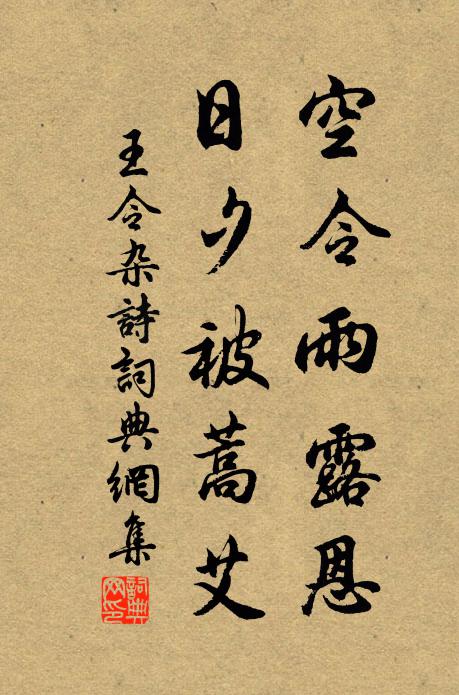 空令雨露恩
日夕被蒿艾
王令杂詩詞典網集
詞典网印